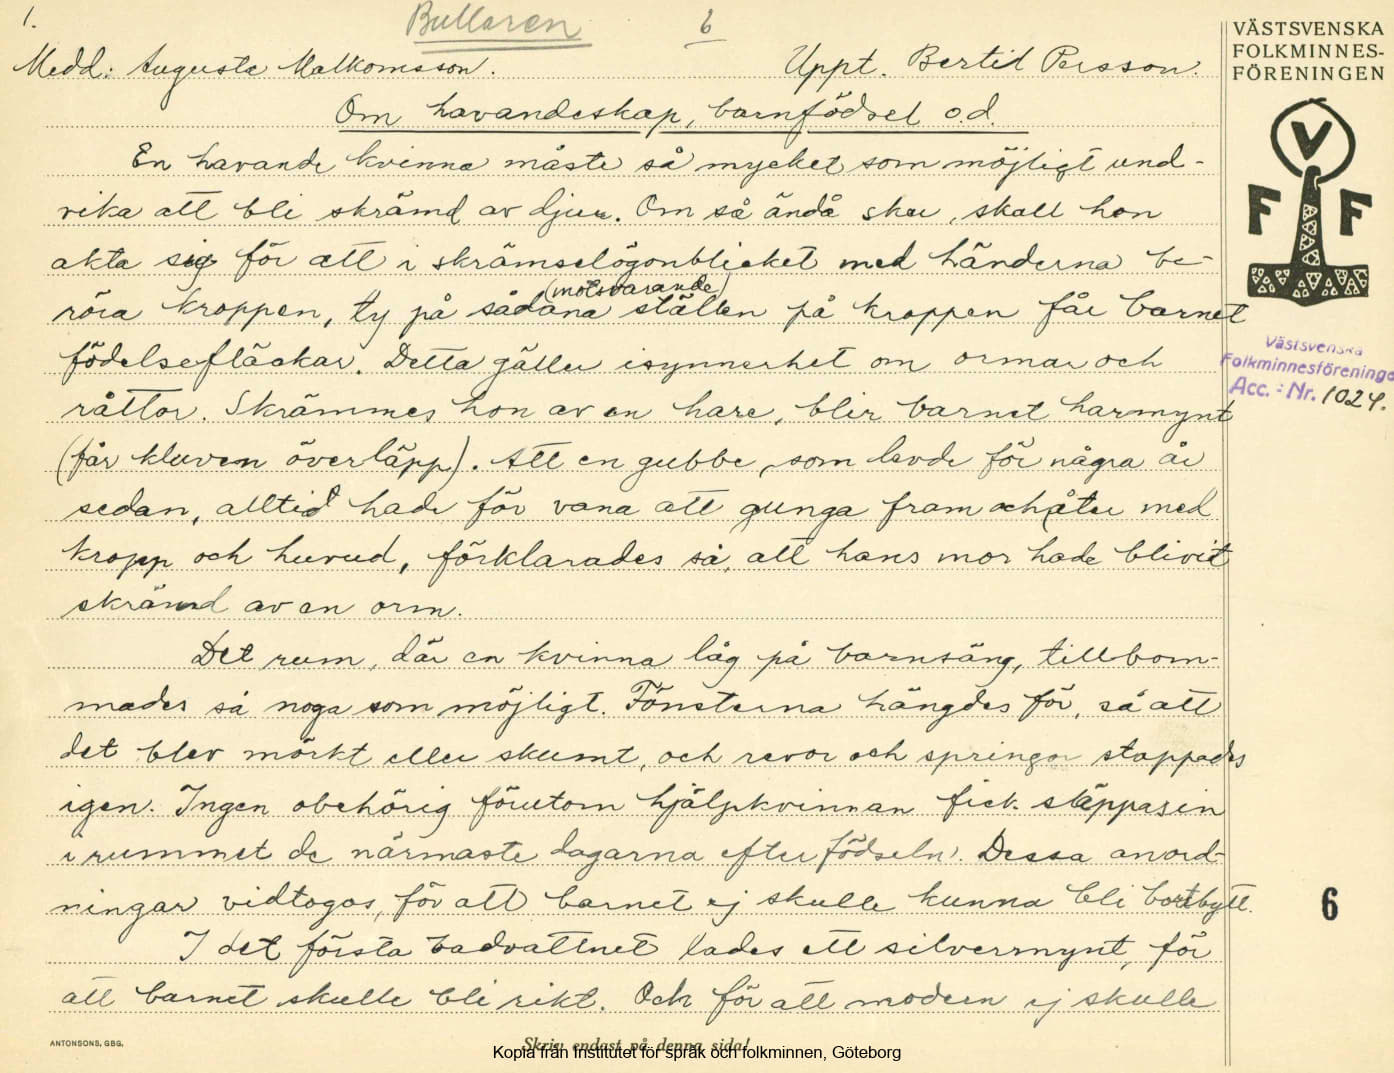 1.
Bullaren
6
Medd: Augusta Malkomsson.
Uppt. Bertil Persson.
Om havandeskap, barnfödsel o.d.
En havande kvinna måste så mycket som möjligt und-
vika att bli skrämd av djur. Om så ändå sker, skall hon
akta sig för att i skrämselögonblicket med händerna be-
(motsvarande)
röra kroppen, ty på sådana ställen på kroppen får barnet
födelsefläckar. Detta gäller isynnerhet om ormar och
råttor. Skrämmes hon av en hare, blir barnet harmynt
(får kluven överläpp). Att en gubbe, som levde för några år
sedan, alltid hade för vana att gunga fram och åter med
kropp och huvud, förklarades så, att hans mor hade blivit
skrämd av en orm.
Det rum, där en kvinna låg på barnsäng, tillbom-
mades så noga som möjligt. Fönsterna hängdes för, så att
det blev mörkt eller skumt, och revor och springor stoppades
igen. Ingen obehörig förutom hjälpkvinnan fick släppas in
i rummet de närmaste dagarna efter födseln. Dessa anord-
ningar vidtogos, för att barnet ej skulle kunna bli bortbytt.
I det första badvattnet lades ett silvermynt, för
att barnet skulle bli rikt. Och för att modern ej skulle
VÄSTSVENSKA
FOLKMINNES-
FÖRENINGEN
V
F F
Västsvenska
Folkminnesföreningen
Acc. - Nr. 1024.
6
ANTONSONS, GBG.
Skriv endast på denna sida!
Kopia från Institutet för språk och folkminnen, Göteborg